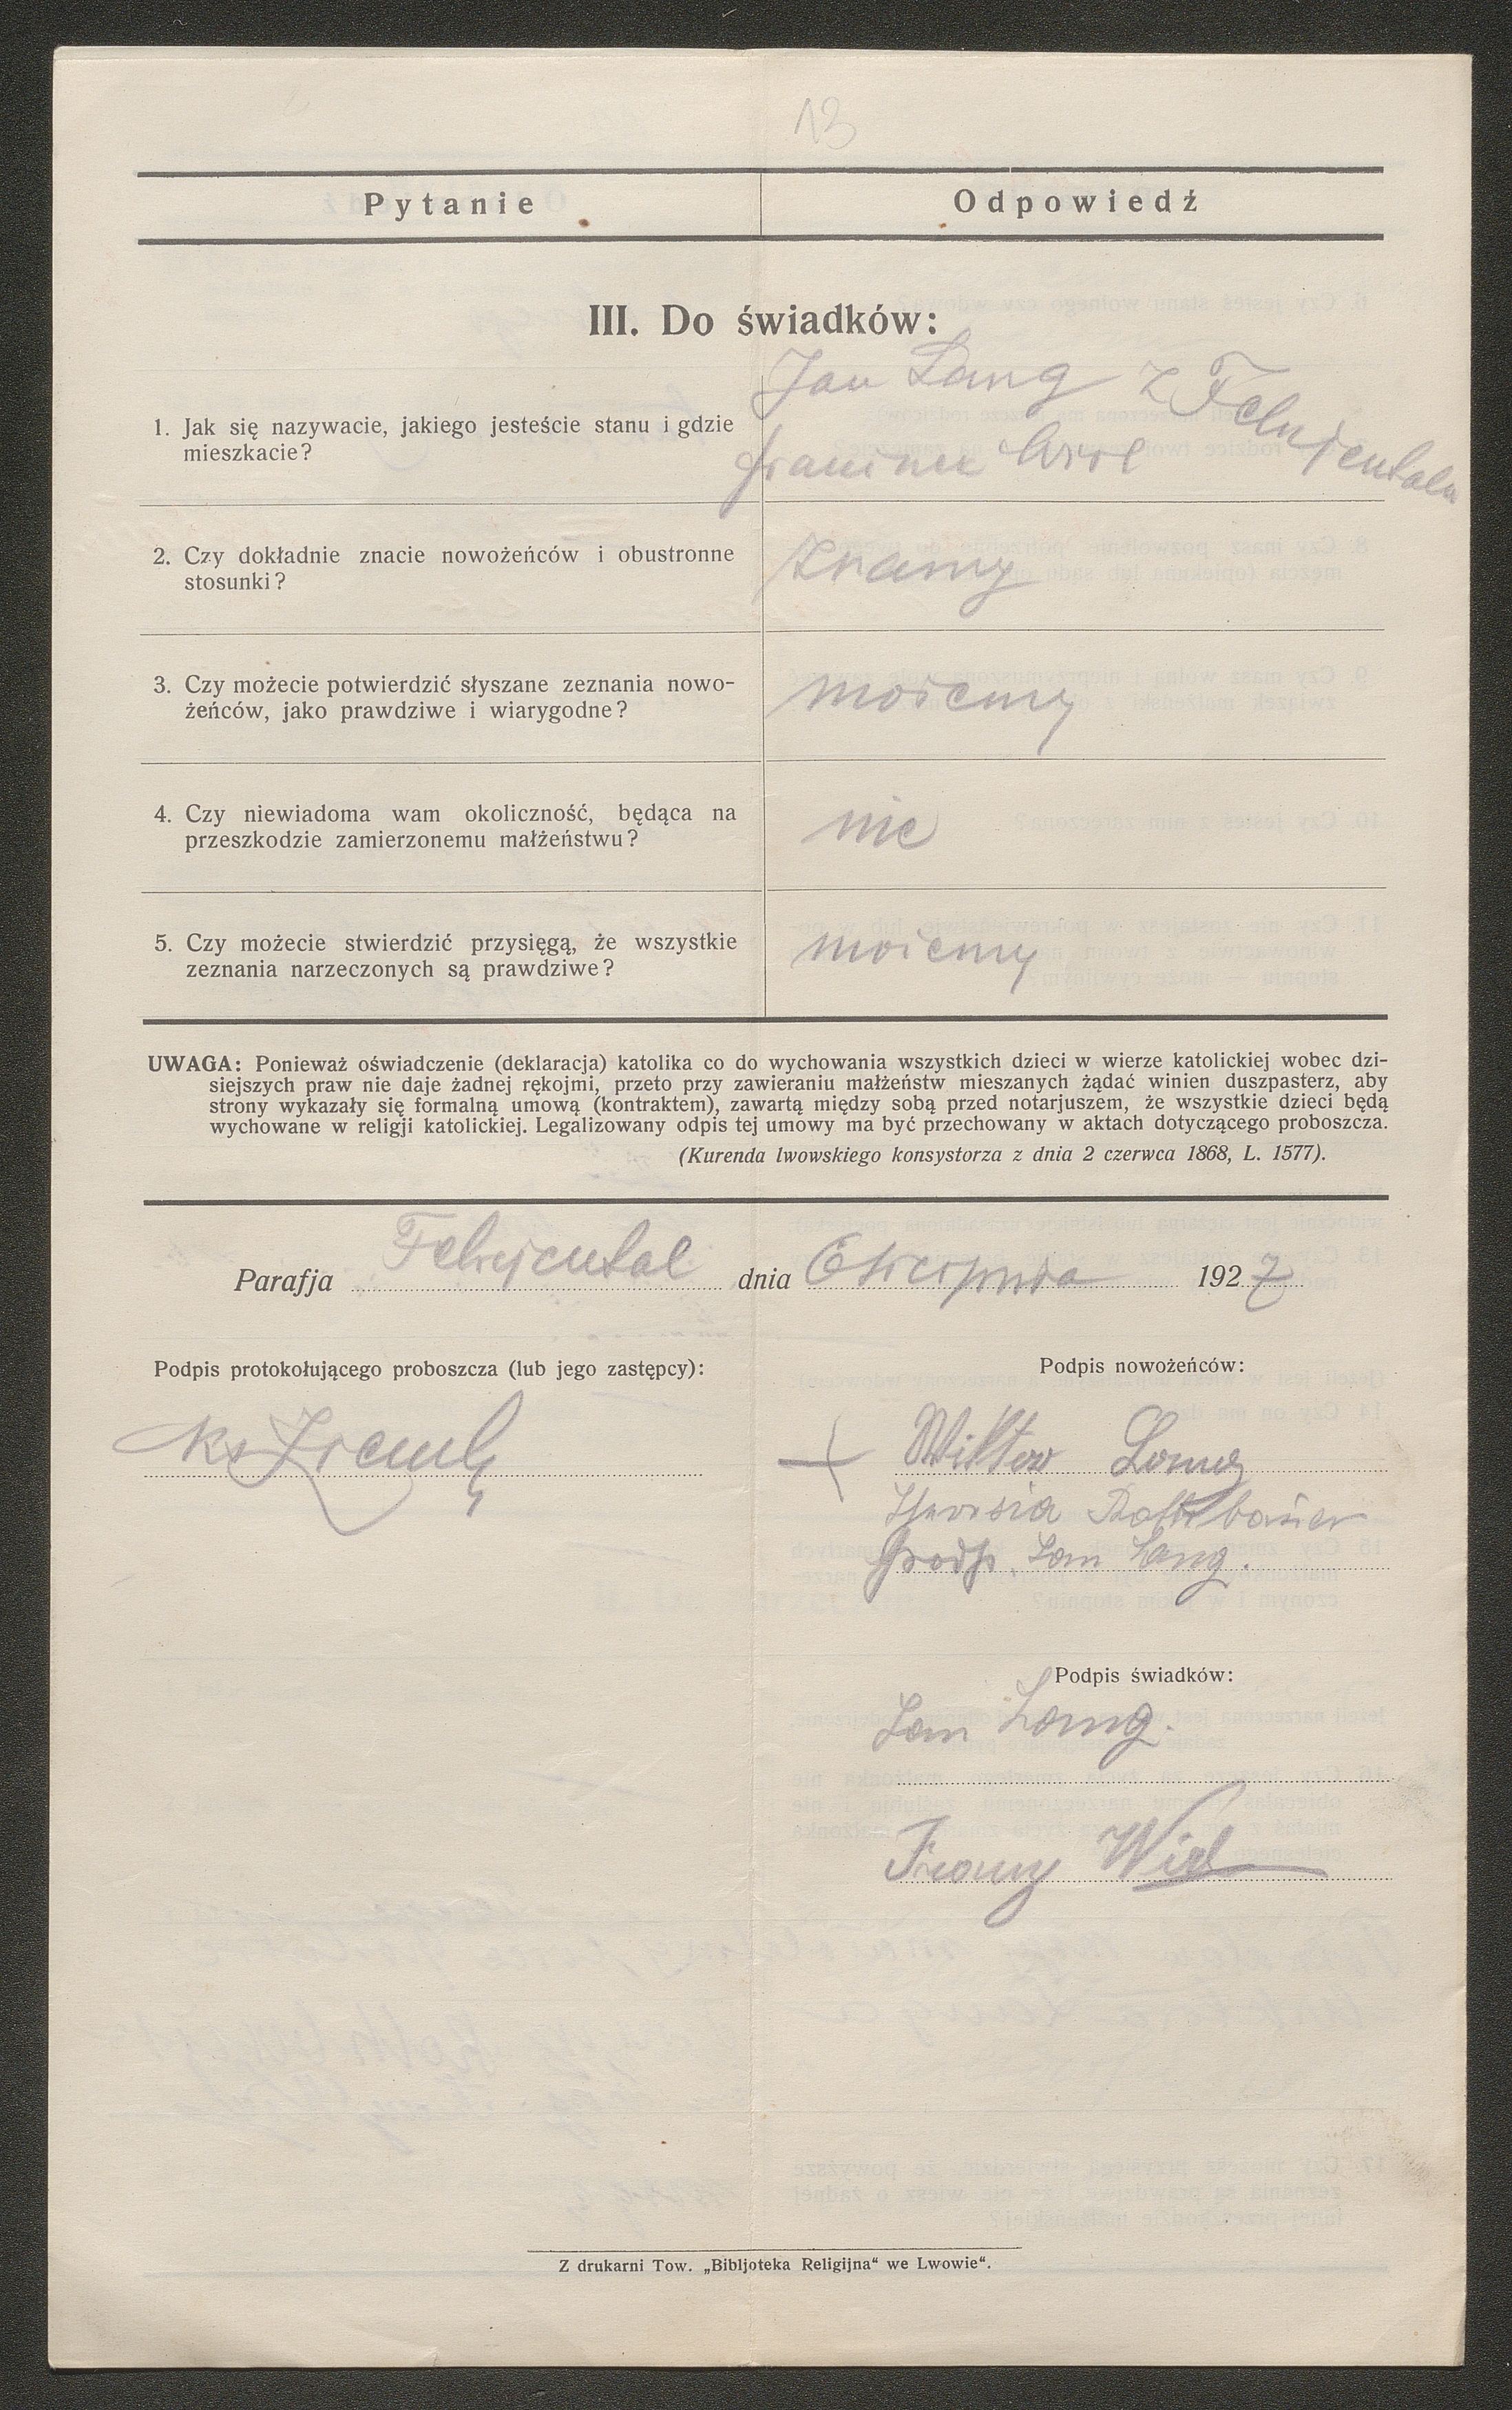 13
Pytanie
Odpowiedź
III. Do świadków:
1. Jak się nazywacie, jakiego jesteście stanu i gdzie
mieszkacie?
Jan Lang z Felizientalu
2. Czy dokładnie znacie nowożeńców i obustronne
stosunki?
znamy
3. Czy możecie potwierdzić słyszane zeznania nowo-
żeńców, jako prawdziwe i wiarygodne?
możemy
4. Czy niewiadoma wam okoliczność, będąca na
przeszkodzie zamierzonemu małżeństwu?
nie
5. Czy możecie stwierdzić przysięgą, że wszystkie
zeznania narzeczonych są prawdziwe?
możemy
UWAGA: Ponieważ oświadczenie (deklaracja) katolika co do wychowania wszystkich dzieci w wierze katolickiej wobec dzi-
siejszych praw nie daje żadnej rękojmi, przeto przy zawieraniu małżeństw mieszanych żądać winien duszpasterz, aby
strony wykazały się formalną umową (kontraktem), zawartą między sobą przed notarjuszem, że wszystkie dzieci będą
wychowane w religji katolickiej. Legalizowany odpis tej umowy ma być przechowany w aktach dotyczącego proboszcza.
(Kurenda lwowskiego konsystorza z dnia 2 czerwca 1868, L. 1577).
Parafja dnia 6 sierpnia 1927
Podpis protokołującego proboszcza (lub jego zastępcy):
Podpis nowożeńców:
Ks
+ Wiktor Lang
Theresia Rothbauer
podp. Jan Lang.
Podpis świadków:
Jan Lang.
Franz Wirl
Z drukarni Tow. „Bibljoteka Religijna“ we Lwowie“.